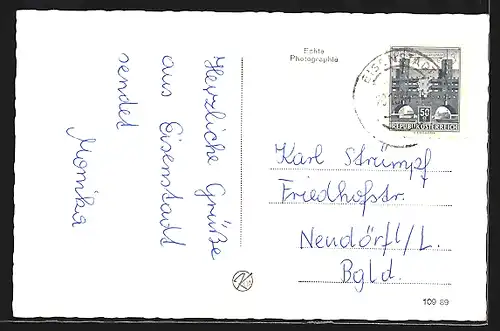 Herzliche Grüße
aus Eisenstadt
sendet
Monika
Echte
Photographie
EISENSTADT
50
REPUBLIK ÖSTERREICH
Karl Strümpf
Friedhofstr.
Neudörfl/L.
Bgld.
109 89